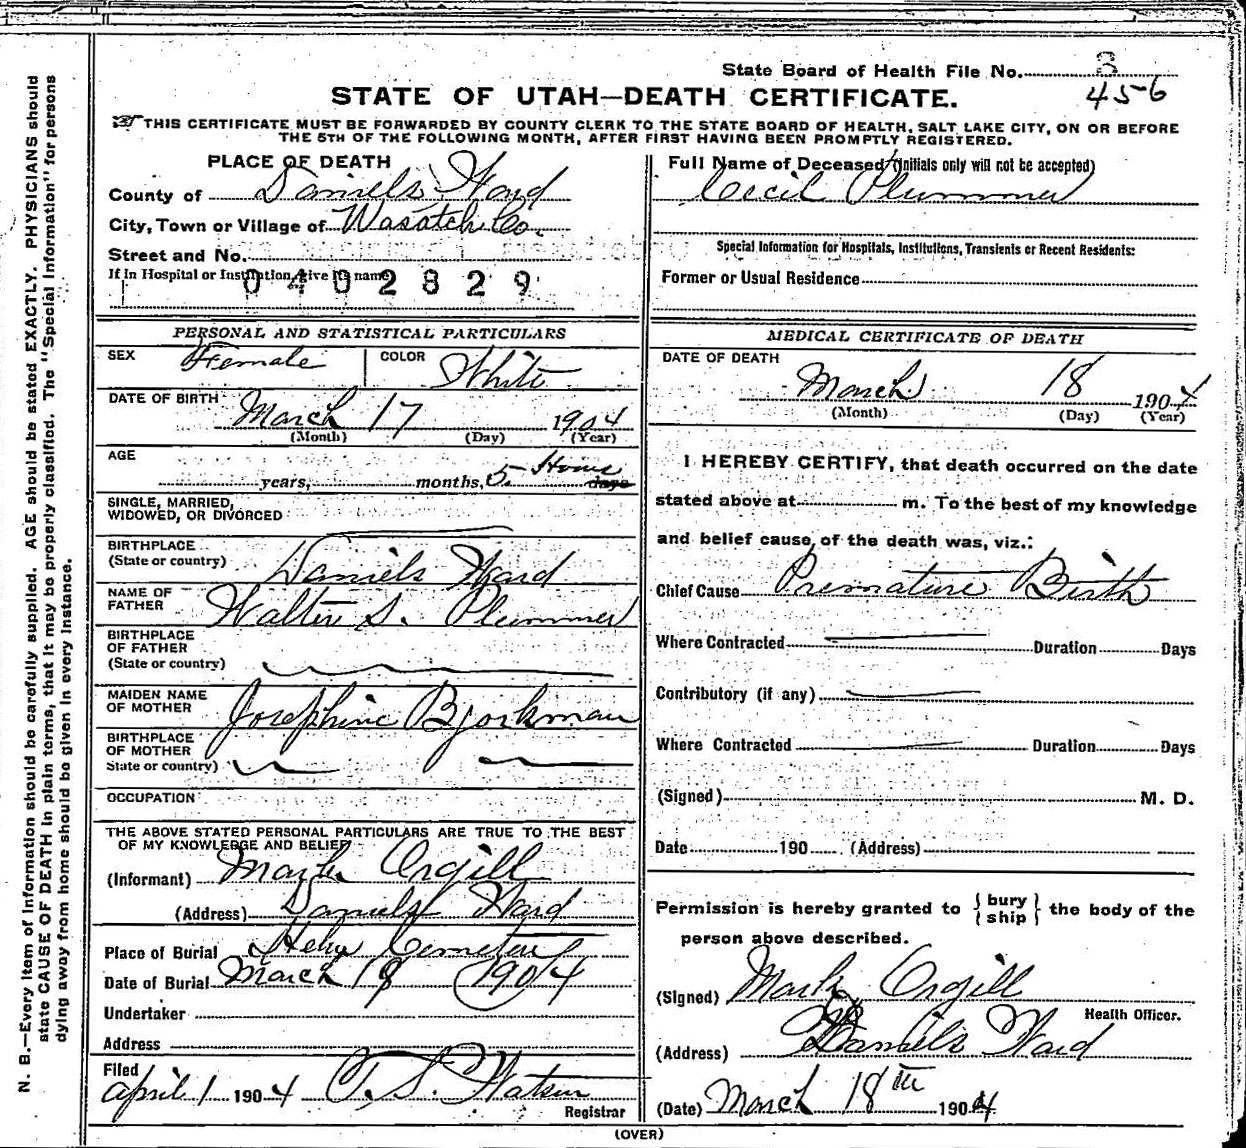 State Board of Health File No. 3
456
STATE OF UTAH—DEATH CERTIFICATE.
THIS CERTIFICATE MUST BE FORWARDED BY COUNTY CLERK TO THE STATE BOARD OF HEALTH, SALT LAKE CITY, ON OR BEFORE
THE 5TH OF THE FOLLOWING MONTH, AFTER FIRST HAVING BEEN PROMPTLY REGISTERED.
PLACE OF DEATH
County of Daniels Ward
City, Town or Village of Wasatch Co.
Street and No.
If in Hospital or Institution, give its name
0402829
Full Name of Deceased (Initials only will not be accepted)
Cecil Plummer
Special Information for Hospitals, Institutions, Transients or Recent Residents:
Former or Usual Residence
PERSONAL AND STATISTICAL PARTICULARS
SEX Female COLOR White
DATE OF BIRTH March 17 1904
(Month) (Day) (Year)
AGE
years, months, 5 Hours days
SINGLE, MARRIED,
WIDOWED, OR DIVORCED
BIRTHPLACE
(State or country) Daniels Ward
NAME OF
FATHER Walter S. Plummer
BIRTHPLACE
OF FATHER
(State or country)
MAIDEN NAME
OF MOTHER Josephine Bjorkman
BIRTHPLACE
OF MOTHER
State or country)
OCCUPATION
THE ABOVE STATED PERSONAL PARTICULARS ARE TRUE TO THE BEST
OF MY KNOWLEDGE AND BELIEF
(Informant) Mark Orgill
(Address) Daniels Ward
Place of Burial Heber Cemetery
Date of Burial March 18 1904
Undertaker
Address
Filed
April 1 1904 T. S. Watson
Registrar
MEDICAL CERTIFICATE OF DEATH
DATE OF DEATH
March 18 1904
(Month) (Day) (Year)
I HEREBY CERTIFY, that death occurred on the date
stated above at m. To the best of my knowledge
and belief cause of the death was, viz.:
Chief Cause Premature Birth
Where Contracted Duration Days
Contributory (if any)
Where Contracted Duration Days
(Signed) M. D.
Date 190 (Address)
Permission is hereby granted to {bury
ship} the body of the
person above described.
(Signed) Mark Orgill
Health Officer.
(Address) Daniels Ward
(Date) March 18th 1904
(OVER)
N. B.—Every item of information should be carefully supplied. AGE should be stated EXACTLY. PHYSICIANS should
state CAUSE OF DEATH in plain terms, that it may be properly classified. The "Special Information" for persons
dying away from home should be given in every instance.